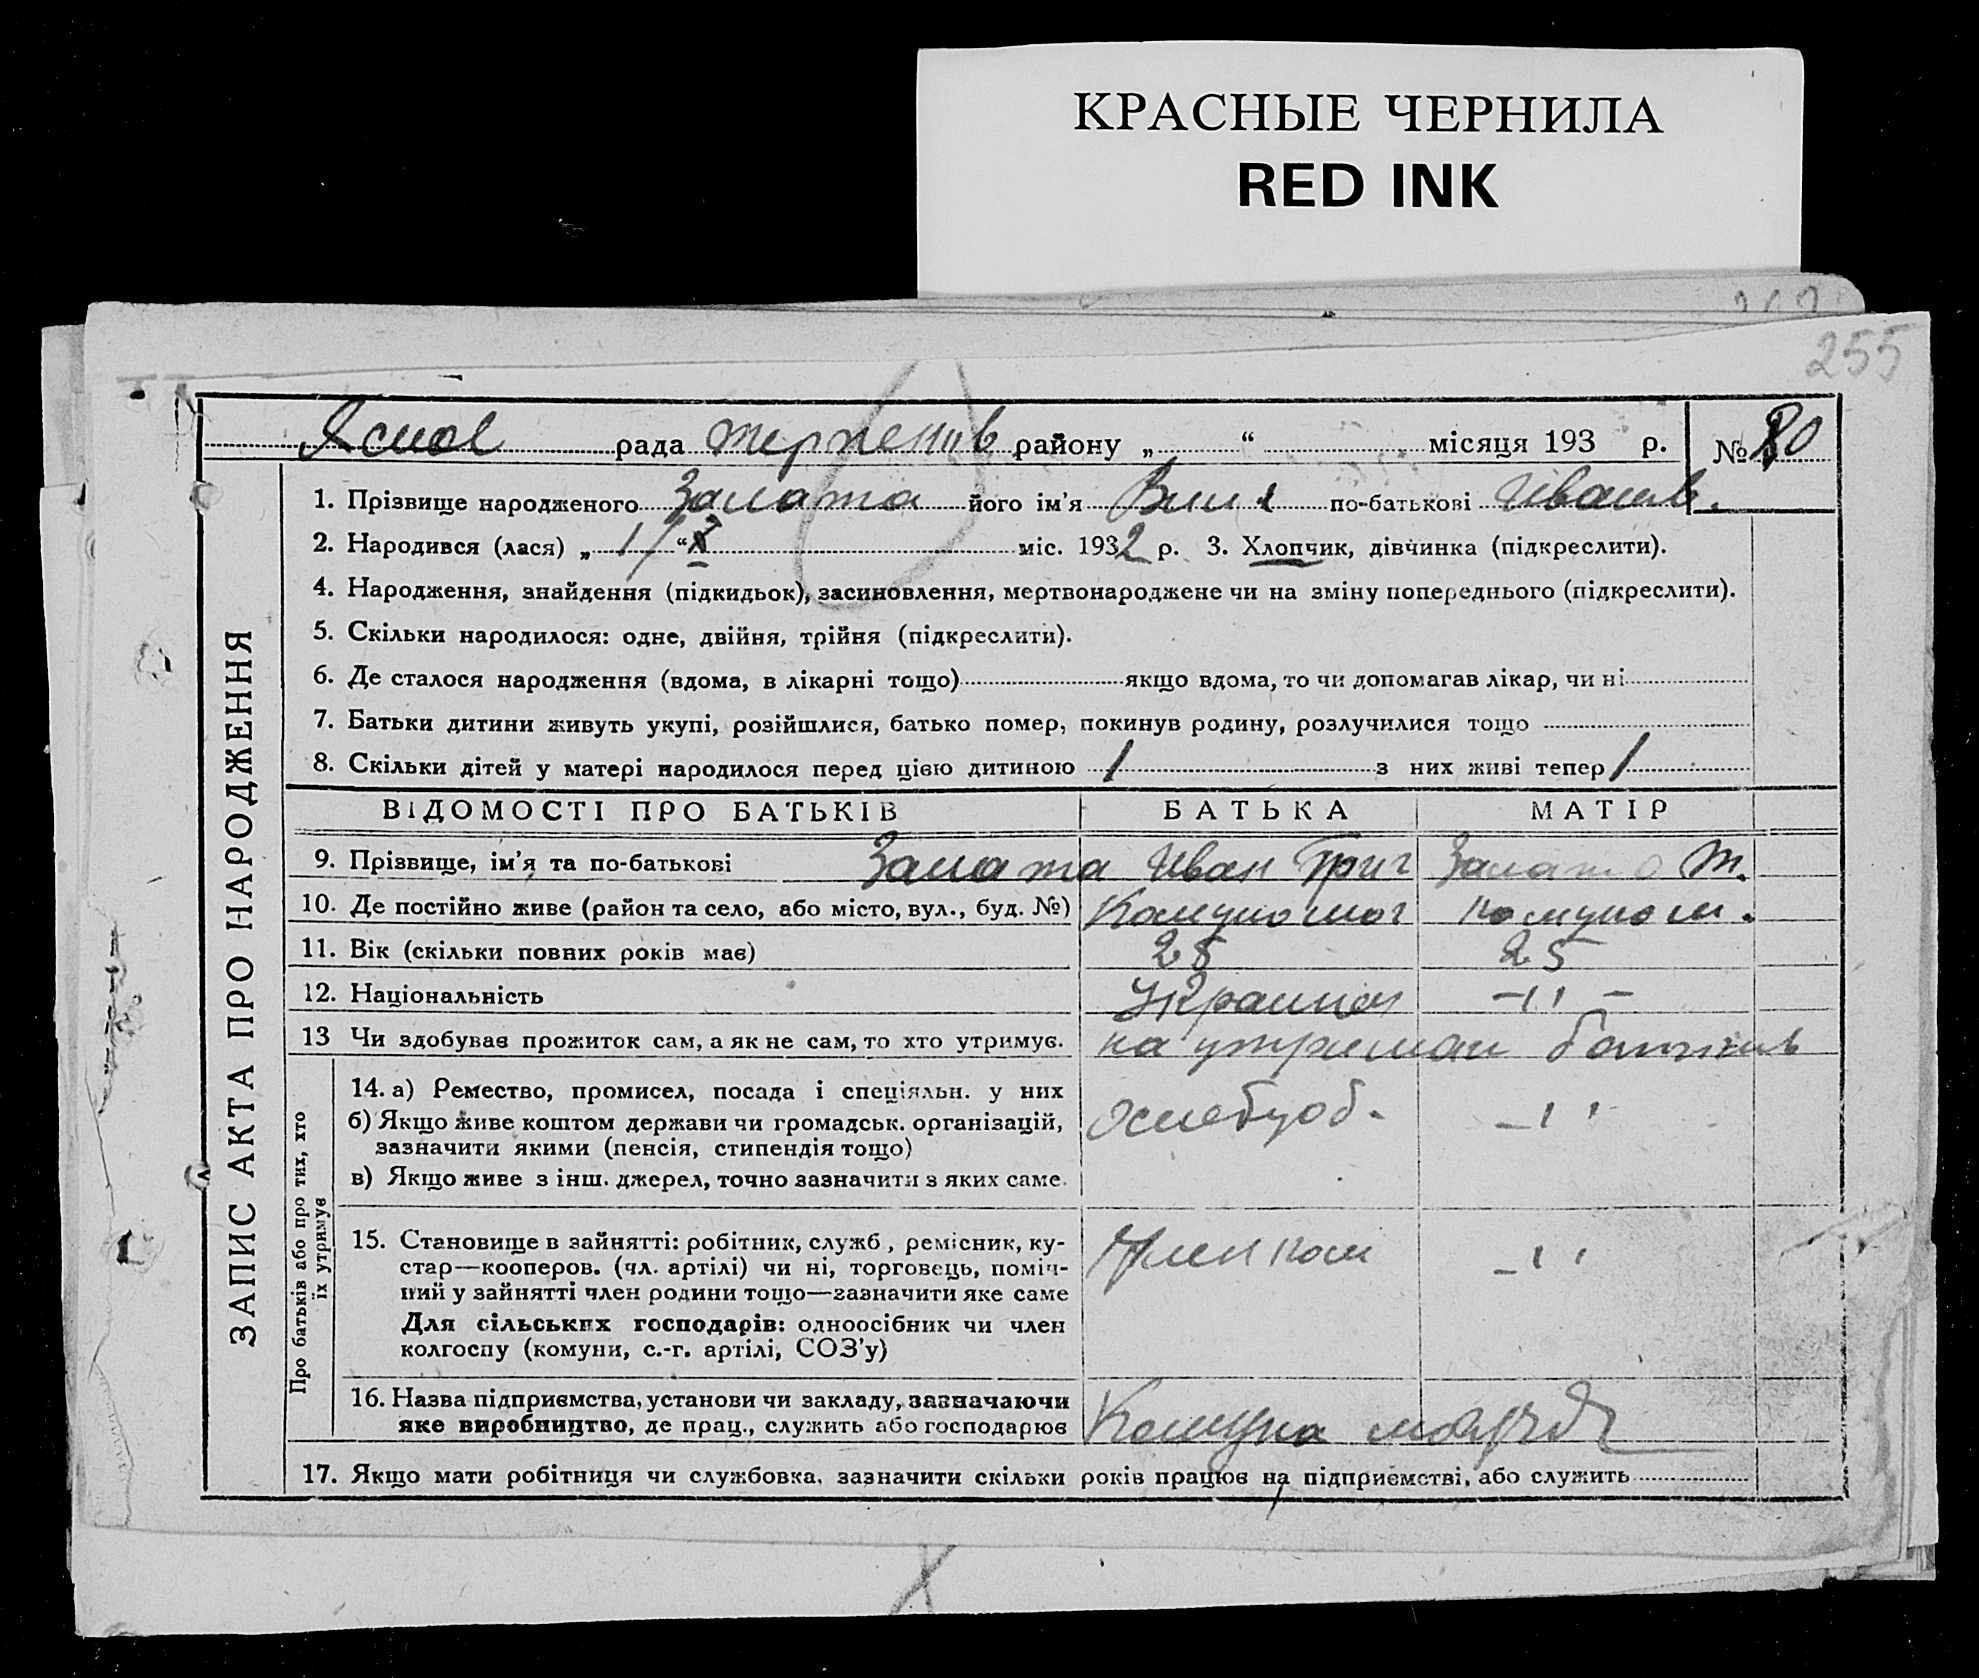 КРАСНЫЕ ЧЕРНИЛА
RED INK
255
рада район­у „ “ місяця 193 р. № 80
1. Прізвище народженого Залата його ім'я по-батькові Іванов.
2. Народився (лася) „ 17 “ X міс. 1932 р. 3. Хлопчик, дівчинка (підкреслити).
4. Народження, знайдення (підкидьок), засиновлення, мертвонароджене чи на зміну попереднього (підкреслити).
5. Скільки народилося: одне, двійня, трійня (підкреслити).
6. Де сталося народження (вдома, в лікарні тощо) якщо вдома, то чи допомагав лікар, чи ні
7. Батьки дитини живуть укупі, розійшлися, батько помер, покинув родину, розлучилися тощо
8. Скільки дітей у матері народилося перед цією дитиною 1 з них живі тепер 1
ВІДОМОСТІ ПРО БАТЬКІВ БАТЬКА МАТІР
9. Прізвище, ім'я та по-батькові Залата Иван Григ Залата
10. Де постійно живе (район та село, або місто, вул., буд. №)
11. Вік (скільки повних років має) 25 25
12. Національність Украинец -"-
13 Чи здобуває прожиток сам, а як не сам, то хто утримує. на утриман батьків
14. а) Ремество, промисел, посада і спеціяльн. у них
б) Якщо живе коштом держави чи громадськ. організацій,
зазначити якими (пенсія, стипендія тощо)
в) Якщо живе з інш. джерел, точно зазначити з яких саме.
хлебороб. -"-
15. Становище в зайнятті: робітник, служб, ремісник, ку-
стар—кооперов. (чл. артілі) чи ні, торговець, поміч-
ний у зайнятті член родини тощо—зазначити яке саме
Для сільських господарів: одноосібник чи член
колгоспу (комуни, с.-г. артілі, СОЗ'у)
Член ком -"-
16. Назва підприємства, установи чи закладу, зазначаючи
яке виробництво, де прац., служить або господарює
Комуна
17. Якщо мати робітниця чи службовка, зазначити скільки років працює на підприємстві, або служить
ЗАПИС АКТА ПРО НАРОДЖЕННЯ
Про батьків або про тих, хто
їх утримує